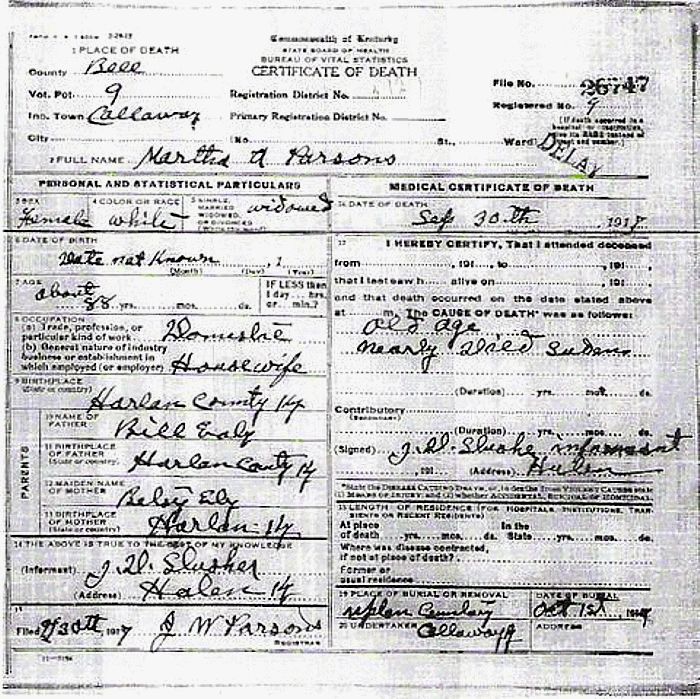 Commonwealth of Kentucky
STATE BOARD OF HEALTH
BUREAU OF VITAL STATISTICS
CERTIFICATE OF DEATH
1 PLACE OF DEATH
County Bell
Vot. Pct. 9
Inc. Town Callaway
City
Registration District No.
Primary Registration District No.
(No. St., Ward)
File No. 26747
Registered No. 9
DELAY
2 FULL NAME Martha A Parsons
PERSONAL AND STATISTICAL PARTICULARS
3 SEX Female
4 COLOR OR RACE white
5 SINGLE, MARRIED, WIDOWED, OR DIVORCED widowed
6 DATE OF BIRTH
Date not Known
(Month) (Day) (Year)
7 AGE
about 88 yrs. mos. ds.
IF LESS than 1 day hrs. or min.?
8 OCCUPATION
(a) Trade, profession, or particular kind of work Domestic
(b) General nature of industry business or establishment in which employed (or employer) Housewife
9 BIRTHPLACE
(State or country)
Harlan County Ky
PARENTS
10 NAME OF FATHER Bill Ealy
11 BIRTHPLACE OF FATHER (State or country) Harlan County Ky
12 MAIDEN NAME OF MOTHER Betsy Ely
13 BIRTHPLACE OF MOTHER (State or country) Harlan Ky
14 THE ABOVE IS TRUE TO THE BEST OF MY KNOWLEDGE
(Informant) J. D. Slusher
(Address) Halen Ky
15
Filed 30th, 1917 J W Parsons
REGISTRAR
MEDICAL CERTIFICATE OF DEATH
16 DATE OF DEATH
Sep 30th, 1917
17 I HEREBY CERTIFY, That I attended deceased
from , 191 , to , 191 ,
that I last saw h alive on , 191 ,
and that death occurred on the date stated above
at m. The CAUSE OF DEATH* was as follows:
old age
nearly Died Suden
(Duration) yrs. mos. ds.
Contributory
(Secondary)
(Duration) yrs. mos. ds.
(Signed) J. D. Slusher, informant
, 191 (Address)
*State the DISEASE CAUSING DEATH, or, in deaths from VIOLENT CAUSES state (1) MEANS OF INJURY; and (2) whether ACCIDENTAL, SUICIDAL or HOMICIDAL.
18 LENGTH OF RESIDENCE (FOR HOSPITALS, INSTITUTIONS, TRANSIENTS OR RECENT RESIDENTS)
At place of death yrs. mos. ds. In the State yrs. mos. ds.
Where was disease contracted, if not at place of death?
Former or usual residence
19 PLACE OF BURIAL OR REMOVAL
DATE OF BURIAL
Cemetary Oct 1st, 1917
20 UNDERTAKER
ADDRESS
Callaway